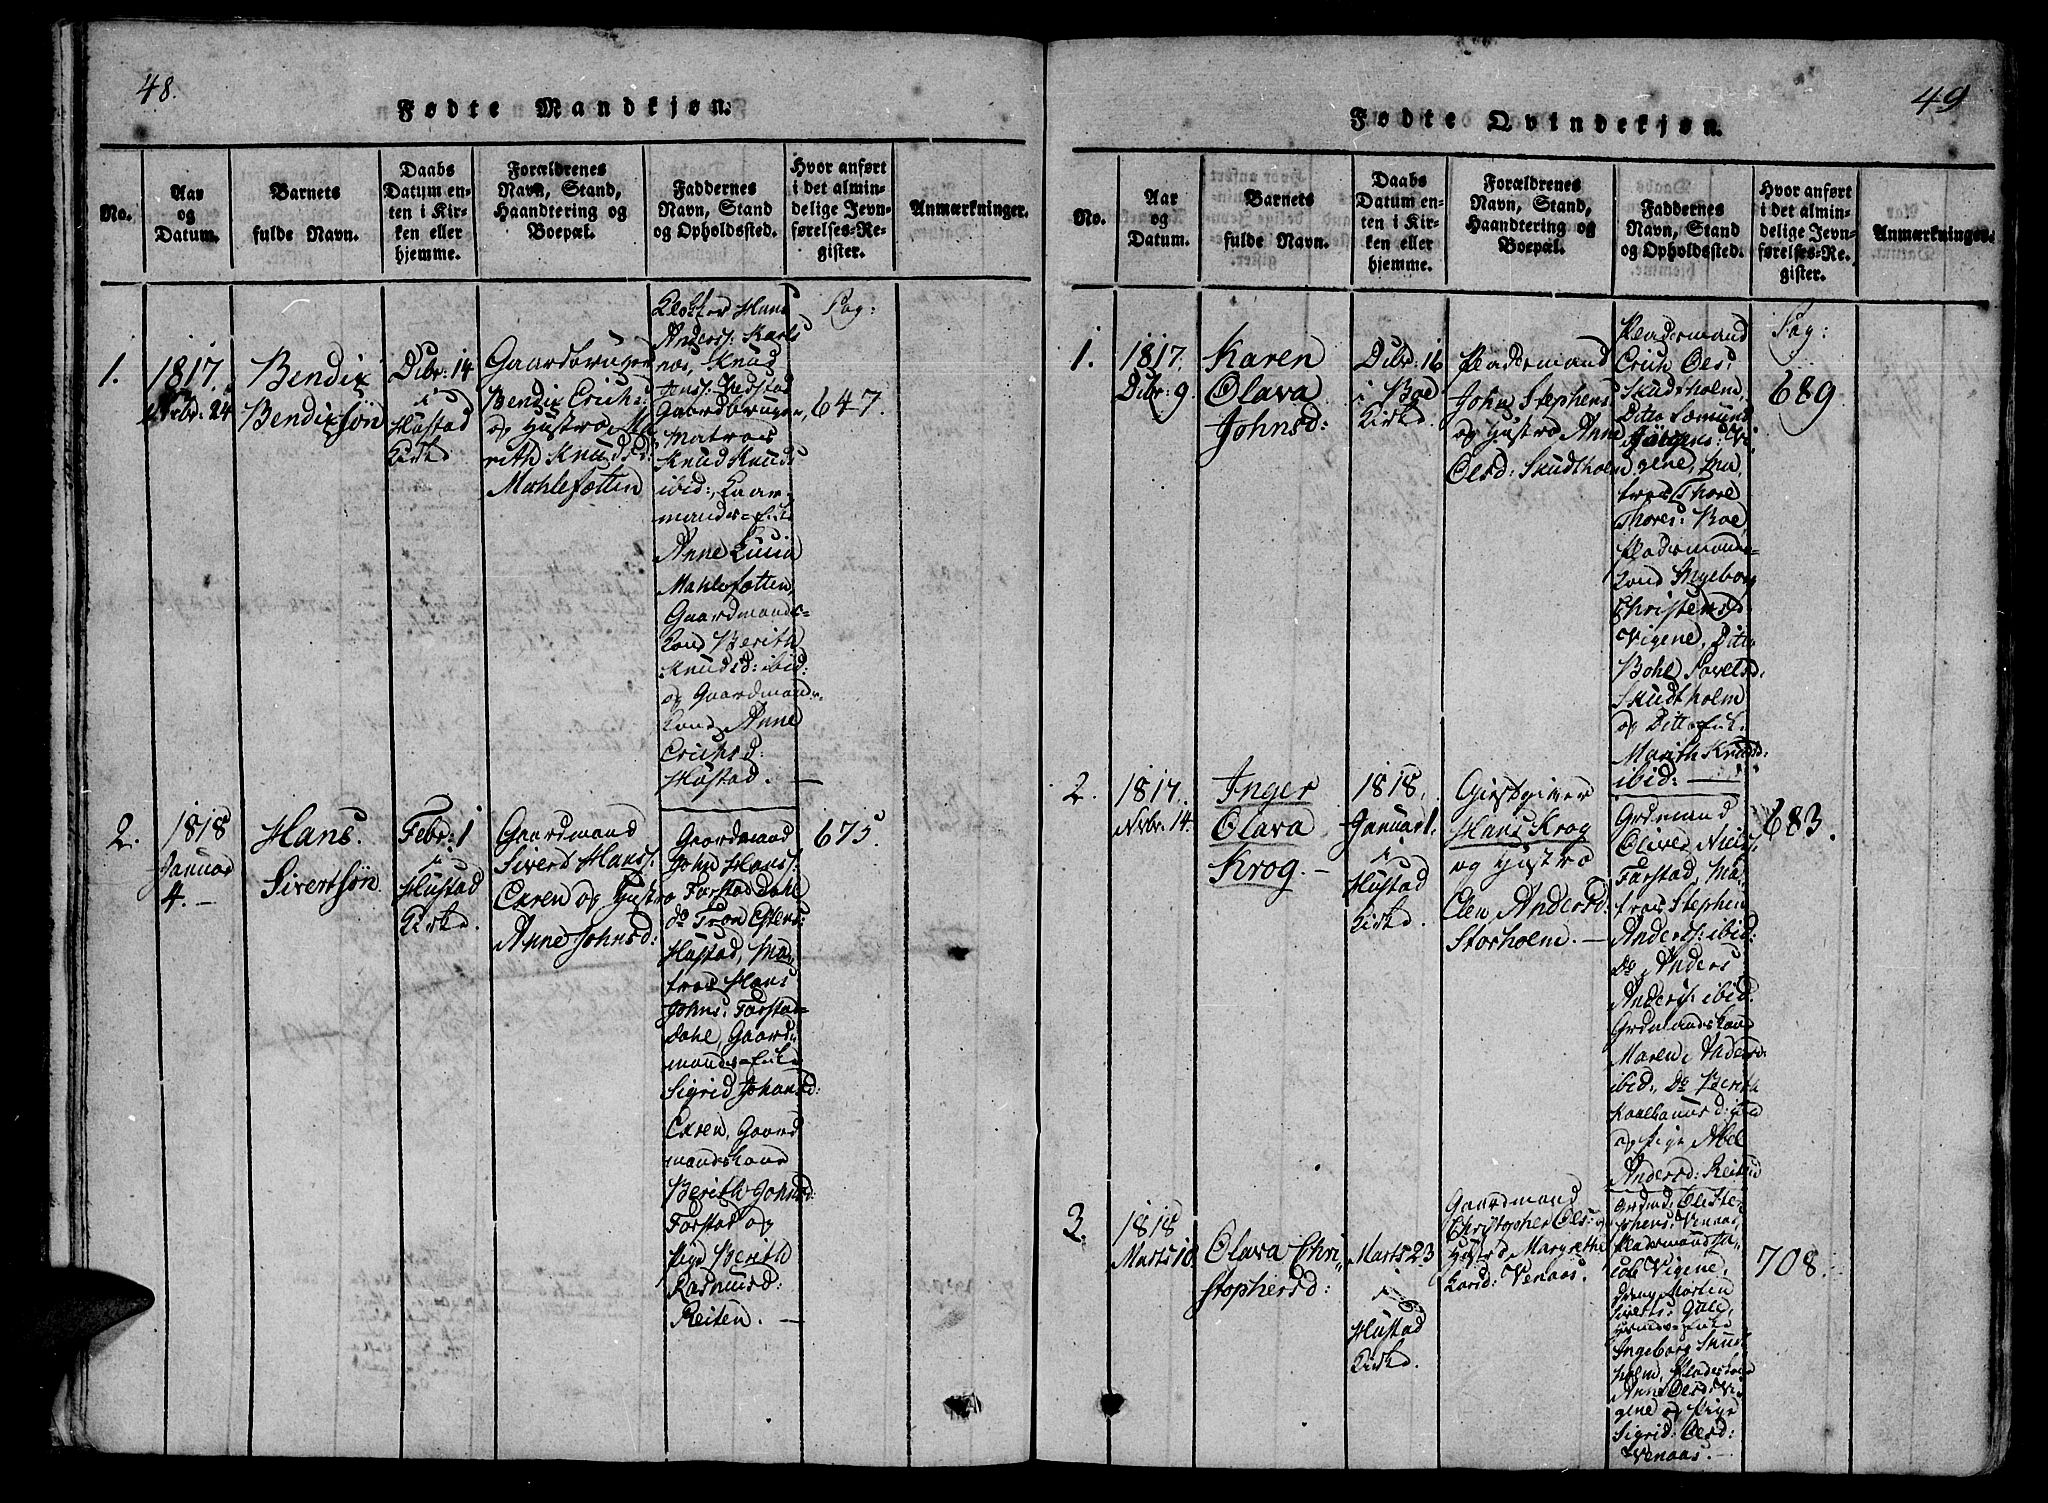 48.
Fødte Mandkjøn.
No.
Aar
og
Datum.
Barnets
fulde Navn.
Daabs
Datum en-
ten i Kir-
ken eller
hjemme.
Forældrenes
Navn, Stand,
Haandtering og
Boepæl.
Faddernes
Navn, Stand
og Opholdssted.
Hvor anført
i det almin-
delige Jevn-
førelses-Re-
gister.
Anmærkninger.
1.
1817.
Nvbr: 24
Bendix
Bendixsøn
Dcbr: 14
i
Hustad
Kirke
Gaardbruger
Bendix Erichs:
og Hustro Ma
rith Knudsd:
Mahlefætten
Klokker Hans
Anderss: Karls
næs, Knud
Jenss: Vestad
Gaardbruger,
Matros
Knud Knuds
ibid:, Gaard
mands-Enke
Anne Lucia
Mahlefætten,
Gaardmands-
Kone Berith
Knudsd: ibid:
og Gaardmands-
Kone Anne
Erichsd:
Hustad. —
Pag:
647.
2.
1818
Januar
4. —
Hans
Sivertsøn
Febr: 1
i
Hustad
Kirke.
Gaardmand
Sivert Hanss:
Exren og Hustro
Anne Johnsd:
Gaardmand
John Hanss:
Farstad Dahl
do Tron Estens:
Hustad, Ma
tros Hans
Johns: Farstad-
dahl, Gaard
mands-Enke
Sigrid Johansd:
Exren, Gaard
mandskone
Berith Johnsd:
Farstad og
Pige Berith
Rasmusd:
Reiten. —
675.
49
Fødte Qvindekjøn.
No.
Aar
og
Datum.
Barnets
fulde Navn.
Daabs
Datum en-
ten i Kir-
ken eller
hjemme.
Forældrenes
Navn, Stand,
Haandtering og
Boepæl.
Faddernes
Navn, Stand
og Opholdssted.
Hvor anført
i det almin-
delige Jevn-
førelses-Re-
gister.
Anmærkninger.
1.
1817.
Dcbr: 9.
Karen
Olava
Johnsd:
Dcbr: 16
i Boe
Kirke.
Pladsmand
John Stephens
og Hustro Anne
Olsd: Skudtholm
Pladsmand
Erich Ols:
Skudtholm,
Ditto Sæmund
Jörgens: Vi
gene, Ma
tros Thore
Thores: Boe
Pladsmands-
Kone Ingeborg
Christensd:
Vigene, Ditto
Bohl Povelsd:
Skudtholm
og Ditto Enke
Marith Knudsd:
ibid: —
Pag:
689.
2.
1817.
Nvbr: 14.
Inger
Olava
Krog. —
1818.
Januar 1.
i
Hustad
Kirke.
Giestgiver
Hans Krog
og Hustro
Elen Andersd:
Storholm. —
Grdmand
Oliver Niels:
Farstad, Ma
tros Stephen
Anders: ibid:
do Anders
Anders: ibid:
Grdmandskone
Maren Andersd:
ibid:, do Berith
ibid
og Pige Abel
Andersd: Reiten
683.
3.
1818
Marts 10.
Olava Chri
stophersd:
Marts 23
i
Hustad
Kirke.
Gaardmand
Christopher Ols: og
Hustro Margrethe
Larsd: Venaas.
Grdmd: Ole Ste
phens: Venaas,
Pladsmand Ja
cob Vigene,
Dreng Morten
Siverts: Gule,
Grmds-Enke
Ingeborg Skudt
holm, Pladskone
Anne Olsd: Vi
gene og Pige
Sigrid Olsd:
Venaas. —
708.